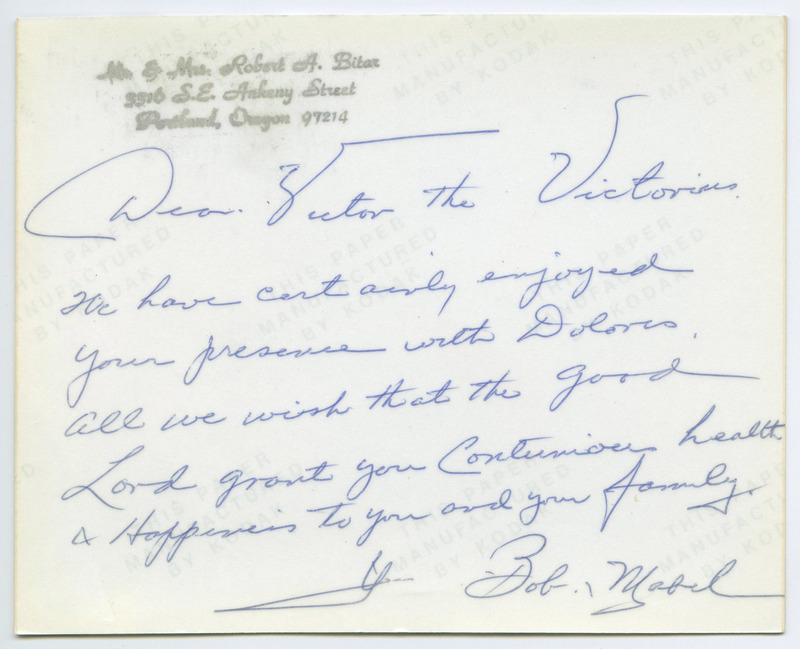 Mr. & Mrs. Robert A. Bitar
3316 S.E. Ankeny Street
Portland, Oregon 97214
Dear Victor the Victorius.
We have certainly enjoyed
your presence with Dolores.
all we wish that the good
Lord grant you Continious health
& Happiness to you and your family.
Bob. & Mabel
THIS PAPER
MANUFACTURED
BY KODAK